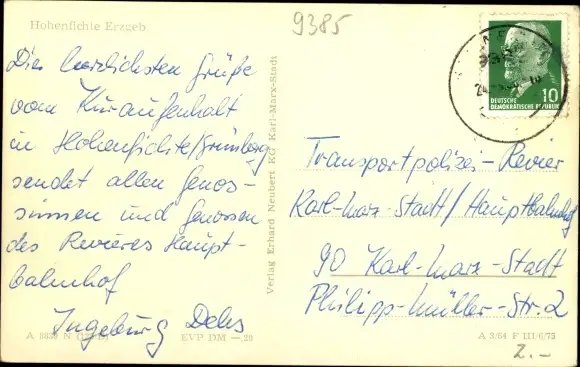 Hohenfichte Erzgeb.
9385
Die herzlichsten Grüße
vom Kuraufenhalt
in Hohenfichte/Grünberg
sendet allen Genos-
sinnen und Genossen
des Revieres Haupt-
bahnhof
Ingeburg
Verlag Erhard Neubert KG Karl-Marx-Stadt
10
DEUTSCHE
DEMOKRATISCHE REPUBLIK
Transportpolizei-Revier
Karl-Marx-Stadt/Hauptbahnhof
90 Karl-Marx-Stadt
Philipp-Müller-Str. 2
EVP DM -,20
A 3/64 F III/6/75
2.-